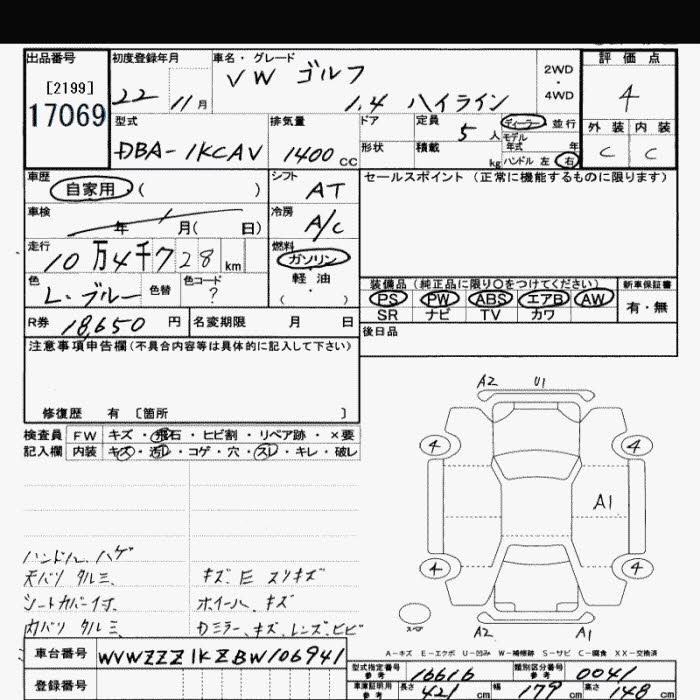 出品番号 初度登録年月 車名・グレード 評価点
[2199] 17069
22 11月 VW ゴルフ 1.4 ハイライン 2WD・4WD 4
型式 排気量 ドア 定員 5人 ディーラー 並行 外装 内装
DBA-1KCAV 1400cc 形状 積載 kg モデル年式 年 ハンドル 左 右 C C
車歴 自家用 ( ) シフト AT セールスポイント (正常に機能するものに限ります)
車検 年 月( 日) 冷房 A/C
走行 10万4千728km 燃料 ガソリン
軽・油
( )
色 L.ブルー 色替 色コード ?
装備品(純正品に限り○をつけてください) 新車保証書
PS PW ABS エアB AW 有・無
SR ナビ TV カワ
R券 18,650円 名変期限 月 日 後日品
注意事項申告欄(不具合内容等は具体的に記入して下さい)
修復歴 有 〔箇所 〕
検査員 FW キズ・飛石・ヒビ割・リペア跡・×要
記入欄 内装 キズ・汚レ・コゲ・穴・スレ・キレ・破レ
A2 U1
4 4
A1
4 4
A2 A1
ハンドル、ハゲ
天バリ タルミ、 キズ、E スリキズ
シートカバー付、 ホイール、キズ
内バリ タルミ、 Dミラー、キズ、レンズ、ヒビ
スペア
A-キズ E-エクボ U-凹み W-補修跡 S-サビ C-腐食 XX-交換済
車台番号 WVWZZZ1KZBW106941
登録番号
型式指定番号 参考 16616 類別区分番号 参考 0041
車庫証明用 参考 長さ 421cm 幅 179cm 高さ 148cm